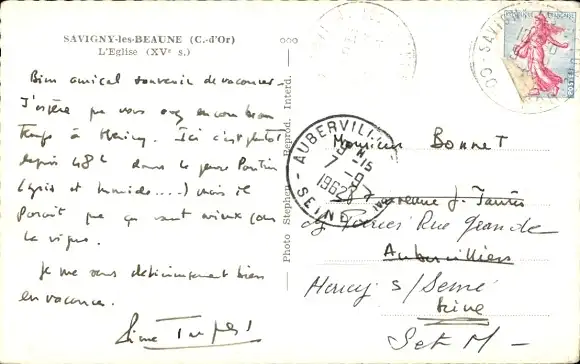 SAVIGNY-les-BEAUNE (C.-d'Or)
L'Eglise (XVe s.)
Bien amical souvenir de vacances -
J'espère que vous avez encore beau
temps à Hericy. Ici c'est plutôt
depuis 48h dans le genre
(gris et humide....) mais il
parait que ça vaut mieux pour
la vigne.
Je me sens définitivement bien
en vacances.
Photo Stephen Reprod. Interd.
AUBERVILLIERS
9H-15
7-9
1962
SEINE
SAVIGNY
Monsieur BONNET
avenue J. Jaurès
Rue Grande
Aubervilliers
Hericy s/Seine
Seine
Set M -